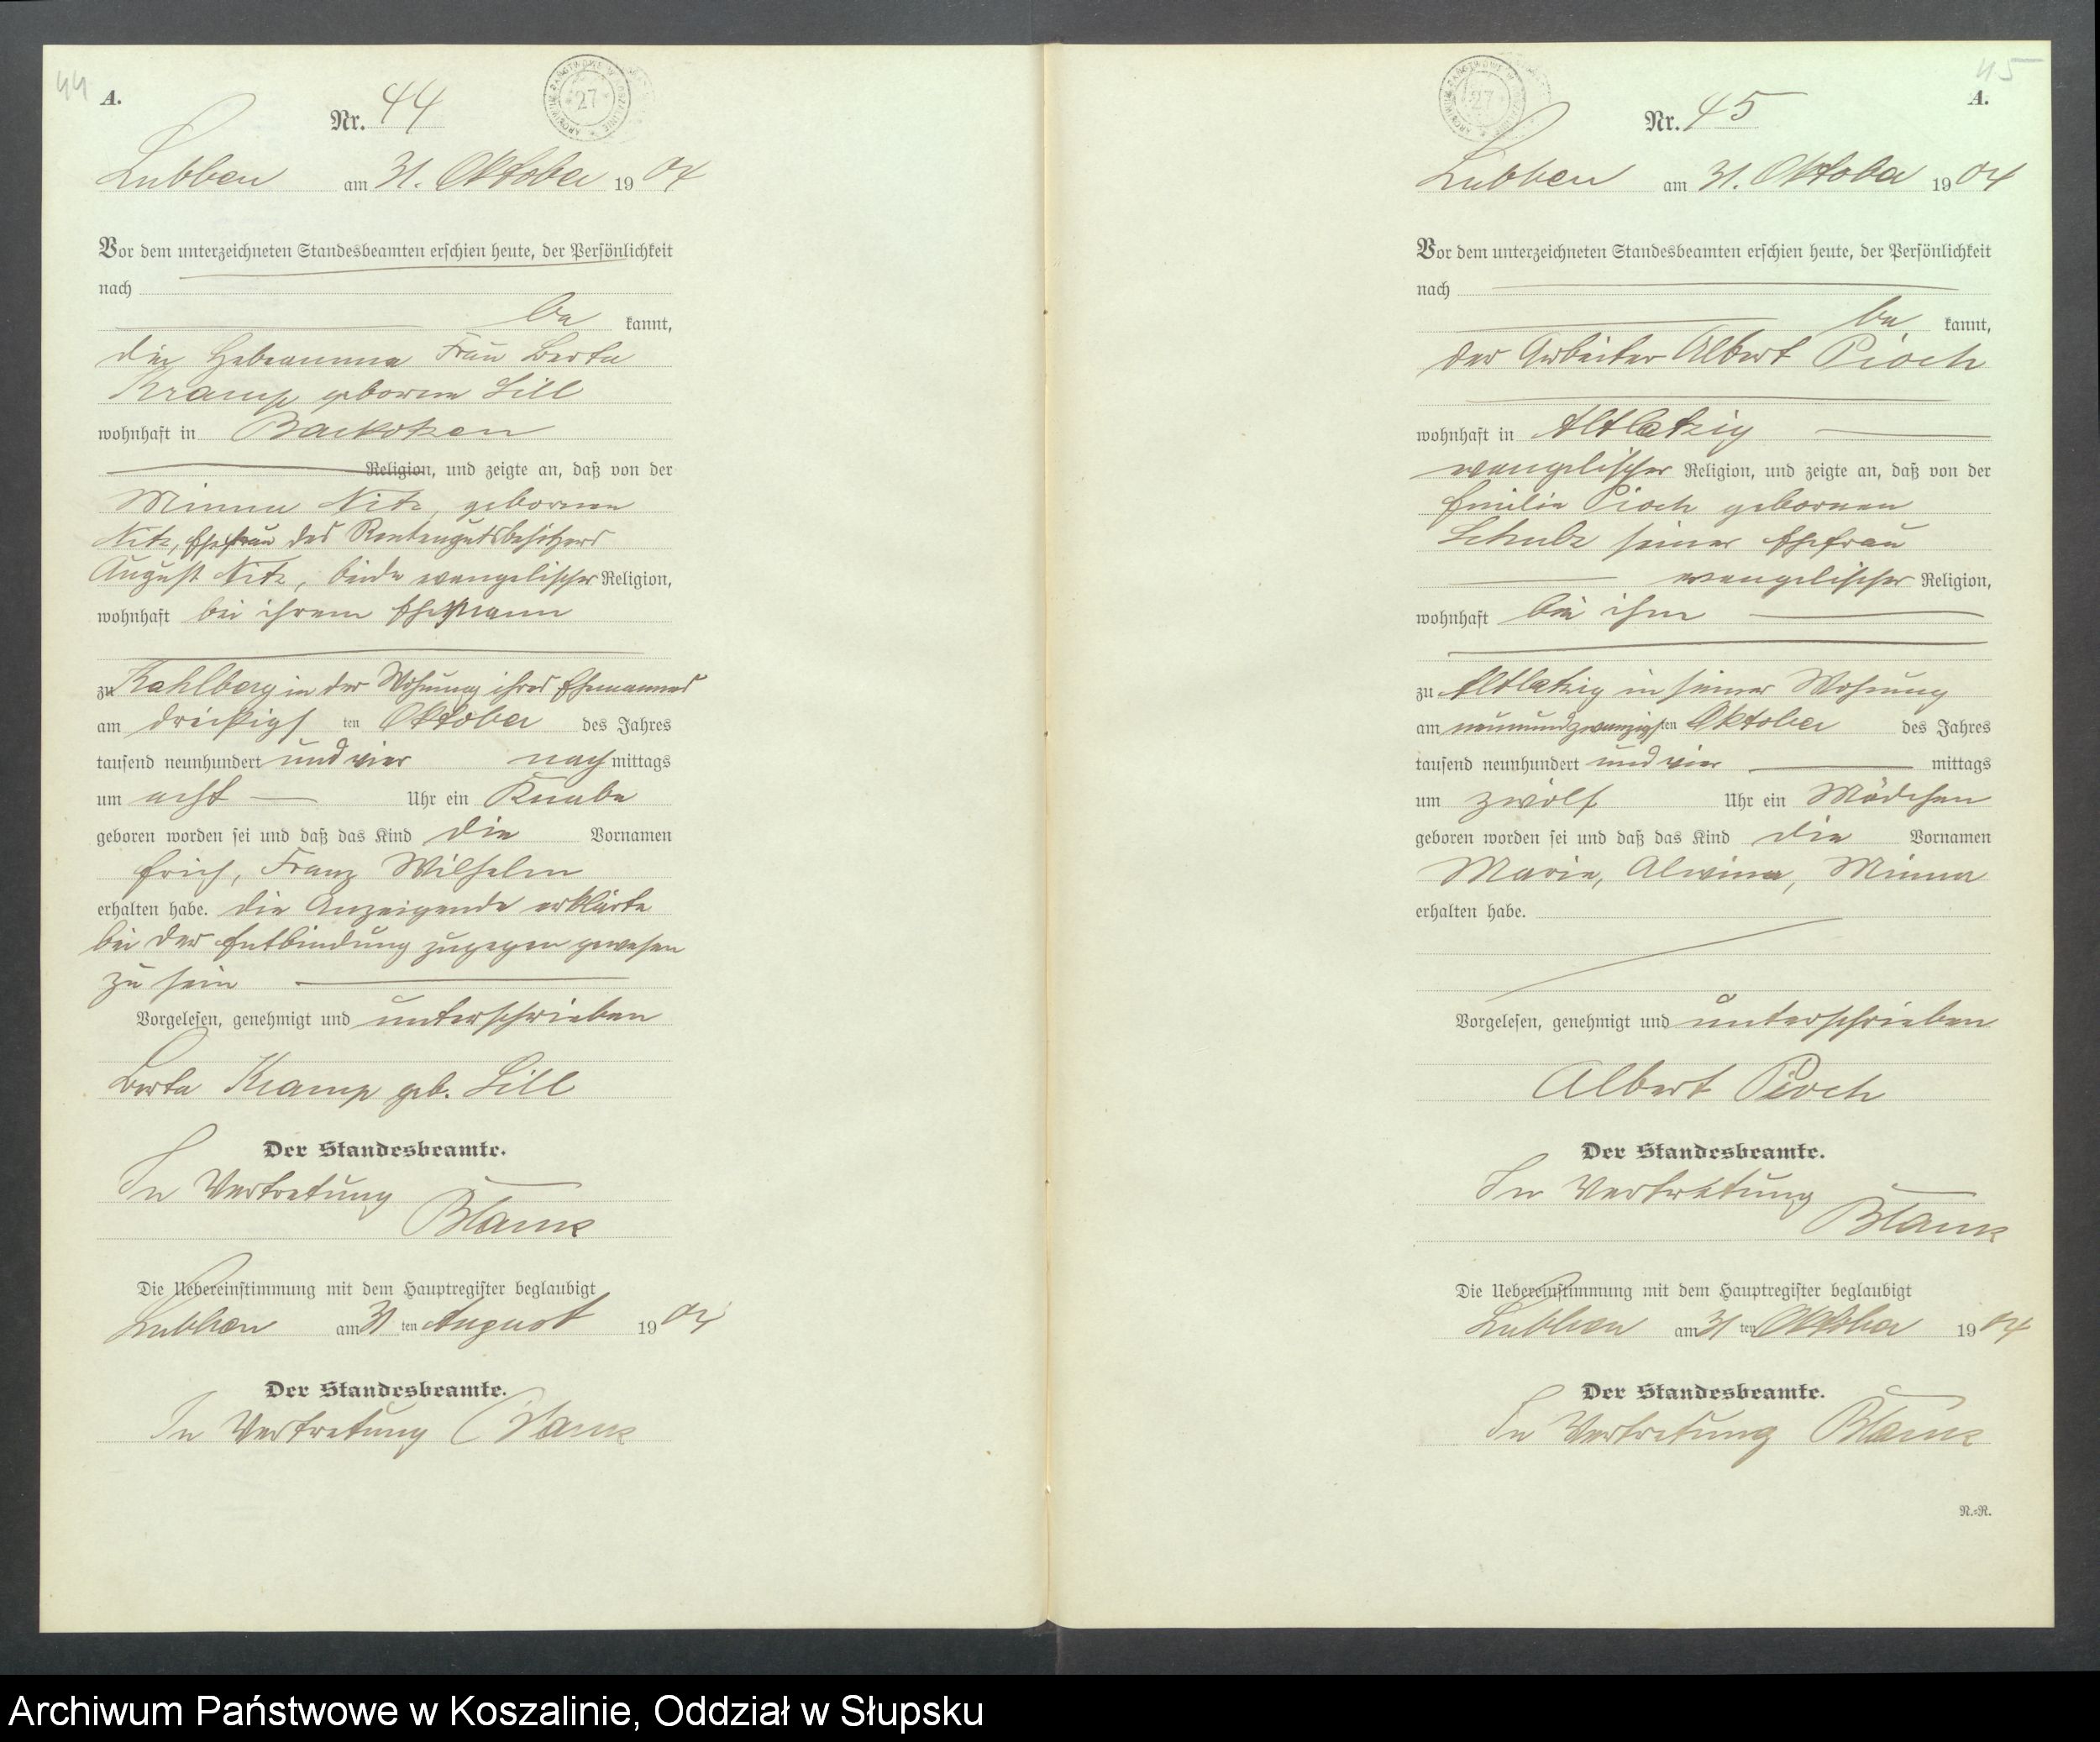 44
A.
Nr. 44
Lubben am 31. Oktober 1904
Vor dem unterzeichneten Standesbeamten erschien heute, der Persönlichkeit
nach
be kannt,
die Hebeamme Frau Berta
Kramp geborne Lill
wohnhaft in Barkotzen
Religion, und zeigte an, daß von der
Minna Nitz, geborenen
Nitz, Ehefrau des Rentengutsbesitzers
August Nitz, beide evangelischer Religion,
wohnhaft bei ihrem Ehemann
zu Kahlberg in der Wohnung ihres Ehemannes
am dreißigs ten Oktober des Jahres
tausend neunhundert und vier nach mittags
um acht Uhr ein Knabe
geboren worden sei und daß das Kind die Vornamen
Erich, Franz Wilhelm
erhalten habe. Die Anzeigende erklärte
bei der Entbindung zugegen gewesen
zu sein
Vorgelesen, genehmigt und unterschrieben
Berta Kramp geb. Lill
Der Standesbeamte.
In Vertretung
Die Uebereinstimmung mit dem Hauptregister beglaubigt
Lubben am 31 ten August 1904
Der Standesbeamte.
In Vertretung
45
A.
Nr. 45
Lubben am 31. Oktober 1904
Vor dem unterzeichneten Standesbeamten erschien heute, der Persönlichkeit
nach
be kannt,
der Arbeiter Albert Pioch
wohnhaft in Altlatzig
evangelischer Religion, und zeigte an, daß von der
Emilie Pioch gebornen
Schulz seiner Ehefrau
evangelischer Religion,
wohnhaft bei ihm
zu Altlatzig in seiner Wohnung
am neunundzwanzigs ten Oktober des Jahres
tausend neunhundert und vier mittags
um zwölf Uhr ein Mädchen
geboren worden sei und daß das Kind die Vornamen
Marie, Alwine, Minna
erhalten habe.
Vorgelesen, genehmigt und unterschrieben
Albert Pioch
Der Standesbeamte.
In Vertretung
Die Uebereinstimmung mit dem Hauptregister beglaubigt
Lubben am 31 ten Oktober 1904
Der Standesbeamte.
In Vertretung
N.=R.
Archiwum Państwowe w Koszalinie, Oddział w Słupsku